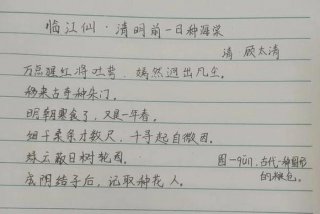 临江仙·清明前一日种海棠
清·顾太清
万点猩红将吐萼，嫣然迥出凡尘。
移来古寺种朱门。
明朝寒食了，又是一年春。
细干柔条才数尺，千寻起自微因。
绿云蔽日树轮囷。
成阴结子后，记取种花人。
囷—qūn，古代一种圆形
的粮仓。